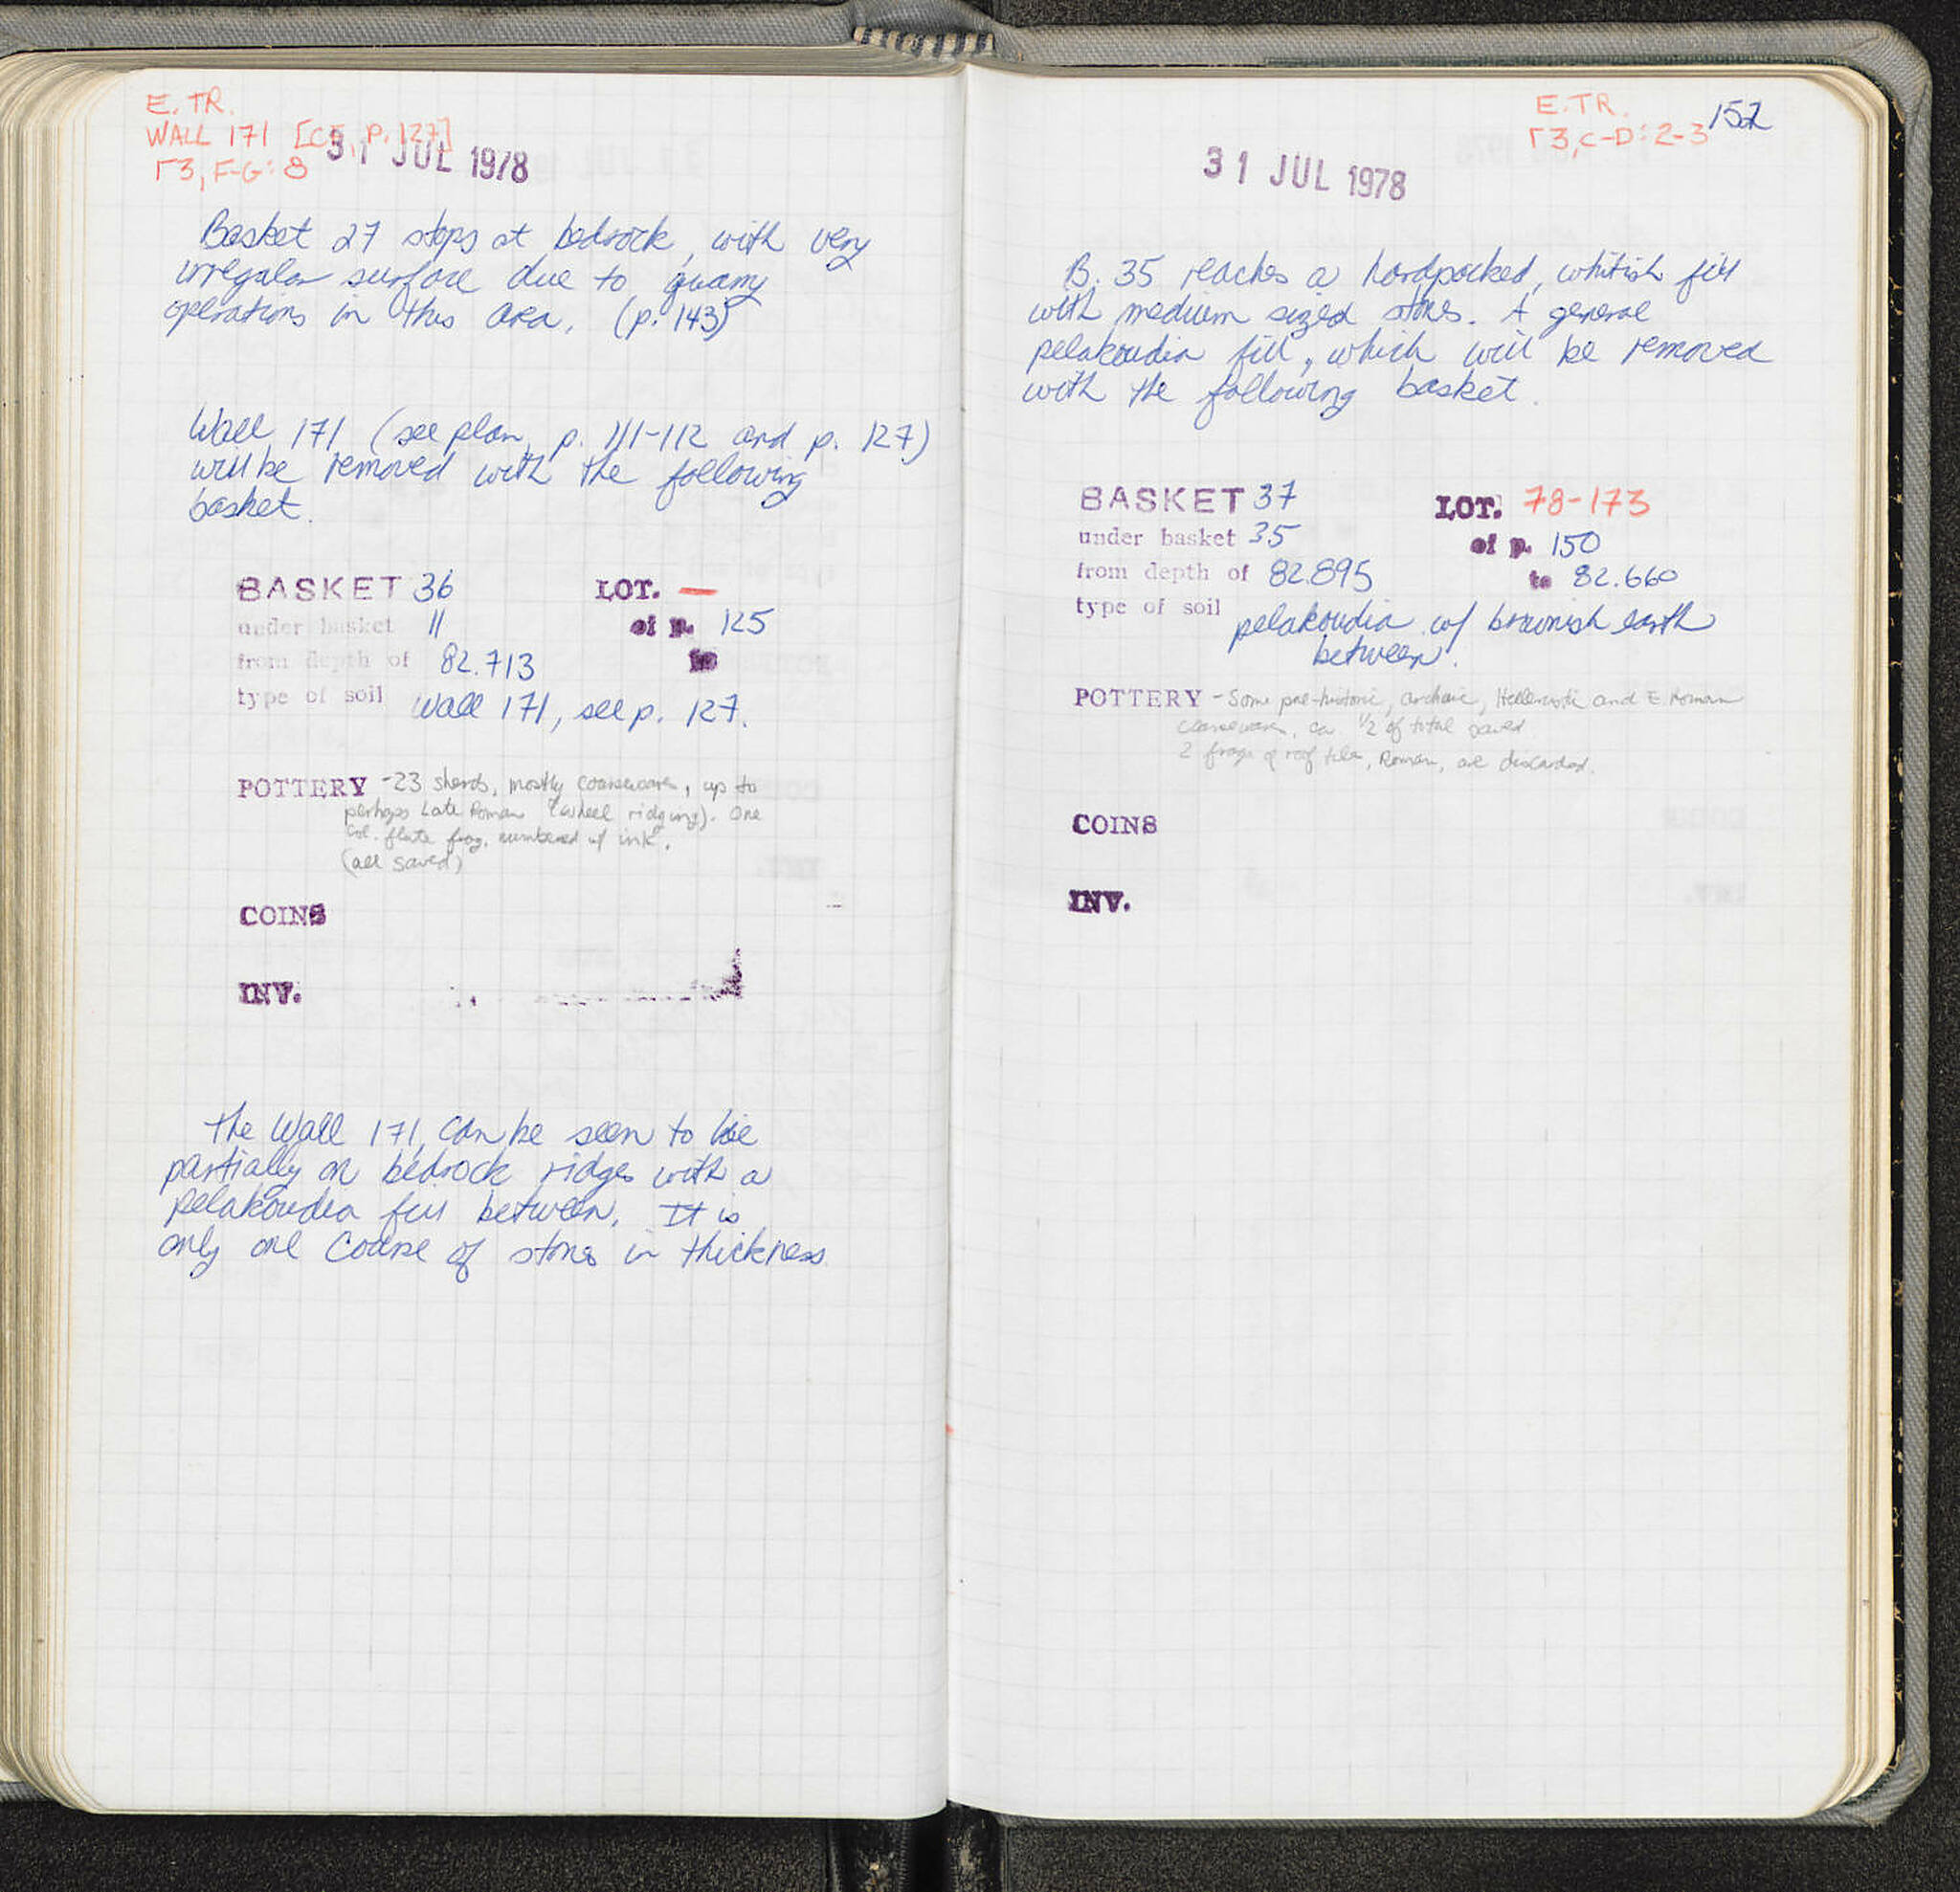 E. TR.
WALL 171 [CF, p. 127]
Γ3, F-G: 8
31 JUL 1978
Basket 27 stops at bedrock, with very
irregular surface due to quarry
operations in this area. (p. 143)
Wall 171 (see plan, p. 111-112 and p. 127)
will be removed with the following
basket.
BASKET 36 LOT. —
under basket 11 of p. 125
from depth of 82.713 to
type of soil Wall 171, see p. 127.
POTTERY -23 sherds, mostly coarseware, up to
perhaps Late Roman (wheel ridging). One
col. flute frag. numbered w/ ink.
(all saved)
COINS
INV.
The Wall 171, can be seen to lie
partially on bedrock ridges with a
pelakoudia fill between. It is
only one course of stones in thickness.
E. TR. 152
Γ3, C-D: 2-3
31 JUL 1978
B. 35 reaches a hardpacked, whitish fill
with medium sized stones. A general
pelakoudia fill, which will be removed
with the following basket.
BASKET 37 LOT. 78-173
under basket 35 of p. 150
from depth of 82.895 to 82.660
type of soil pelakoudia w/ brownish earth
between.
POTTERY - Some pre-historic, archaic, Hellenistic and E. Roman
coarseware, ca. 1/2 of total saved
2 frags of roof tiles, Roman, are discarded.
COINS
INV.